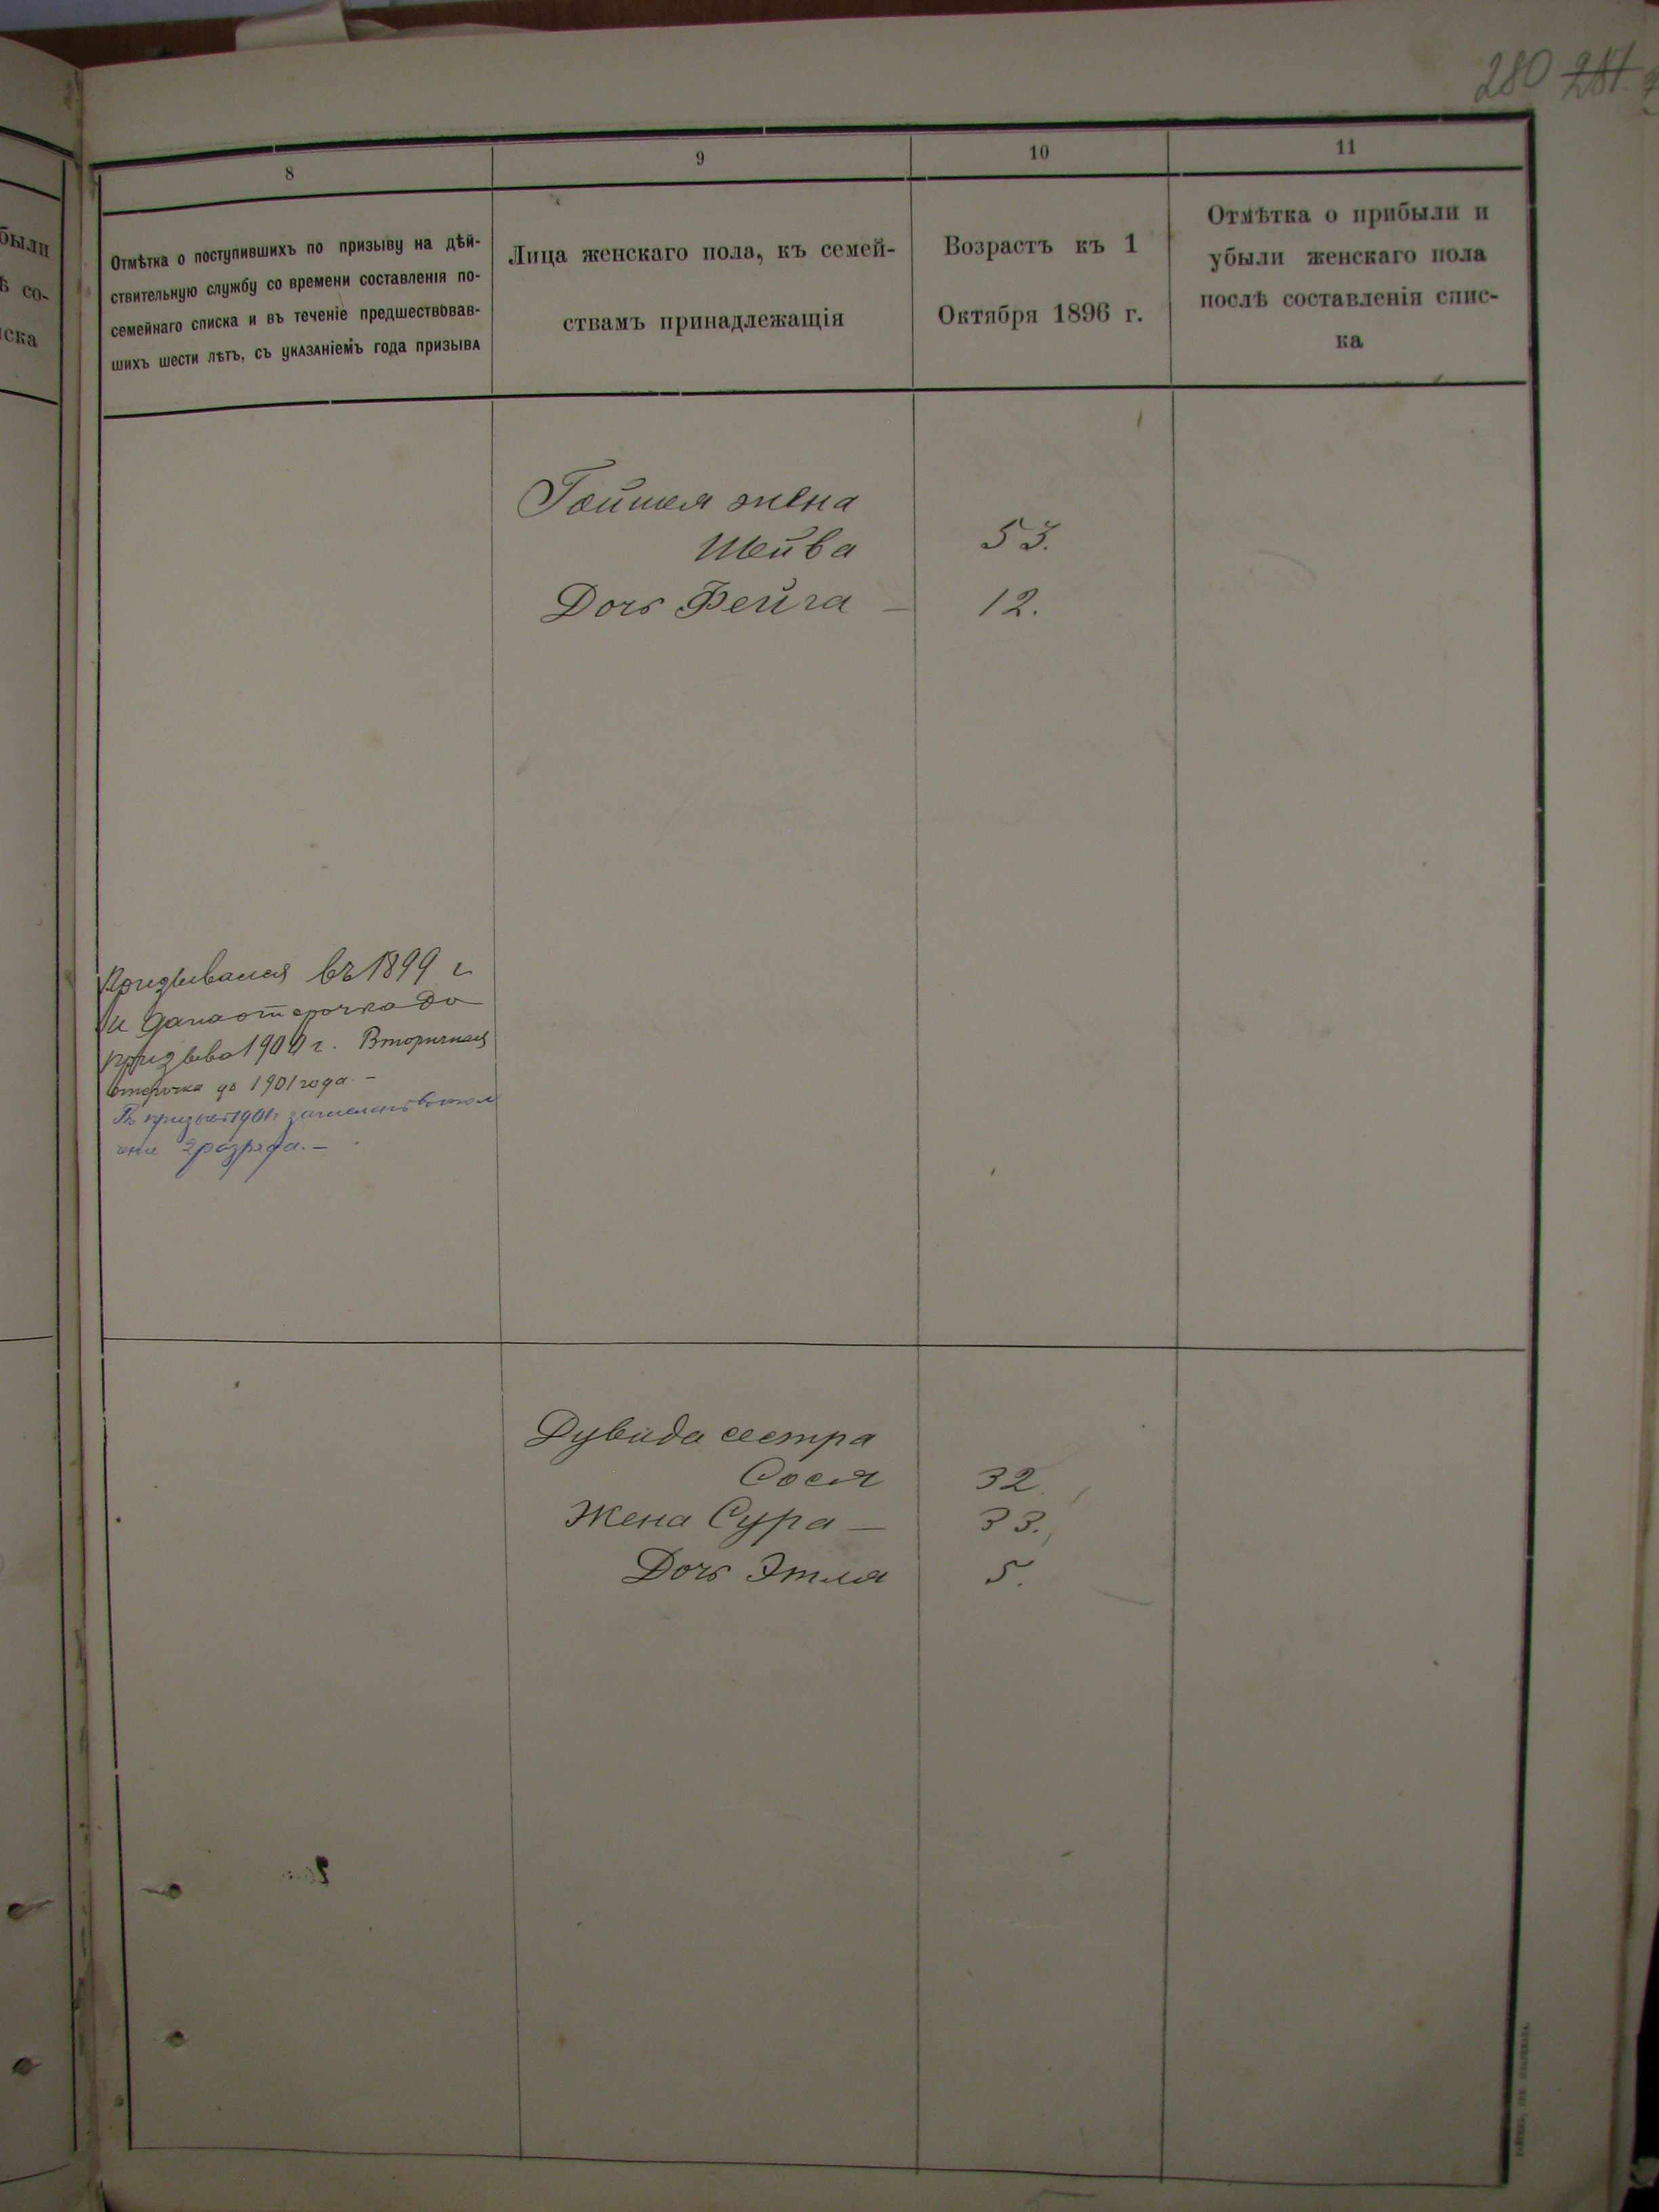 280 281.
были
ѣ со-
иска
8
9
10
11
Отмѣтка о поступившихъ по призыву на дѣй-
ствительную службу со времени составленія по-
семейнаго списка и въ теченіе предшествовав-
шихъ шести лѣтъ, съ указаніемъ года призыва
Лица женскаго пола, къ семей-
ствамъ принадлежащія
Возрастъ къ 1
Октября 1896 г.
Отмѣтка о прибыли и
убыли женскаго пола
послѣ составленія спис-
ка
жена
Шейва 53.
Дочь Фейга — 12.
Призывался въ 1899 г
и дана отсрочка до
призыва 1900 г. Вторичная
отсрочка до 1901 года –
Въ призывъ 1901 г зачисленъ въ опол
чение 2 разряда. –
Дувида сестра
Сося 32.
Жена Сура — 33.
Дочь Этля 5.